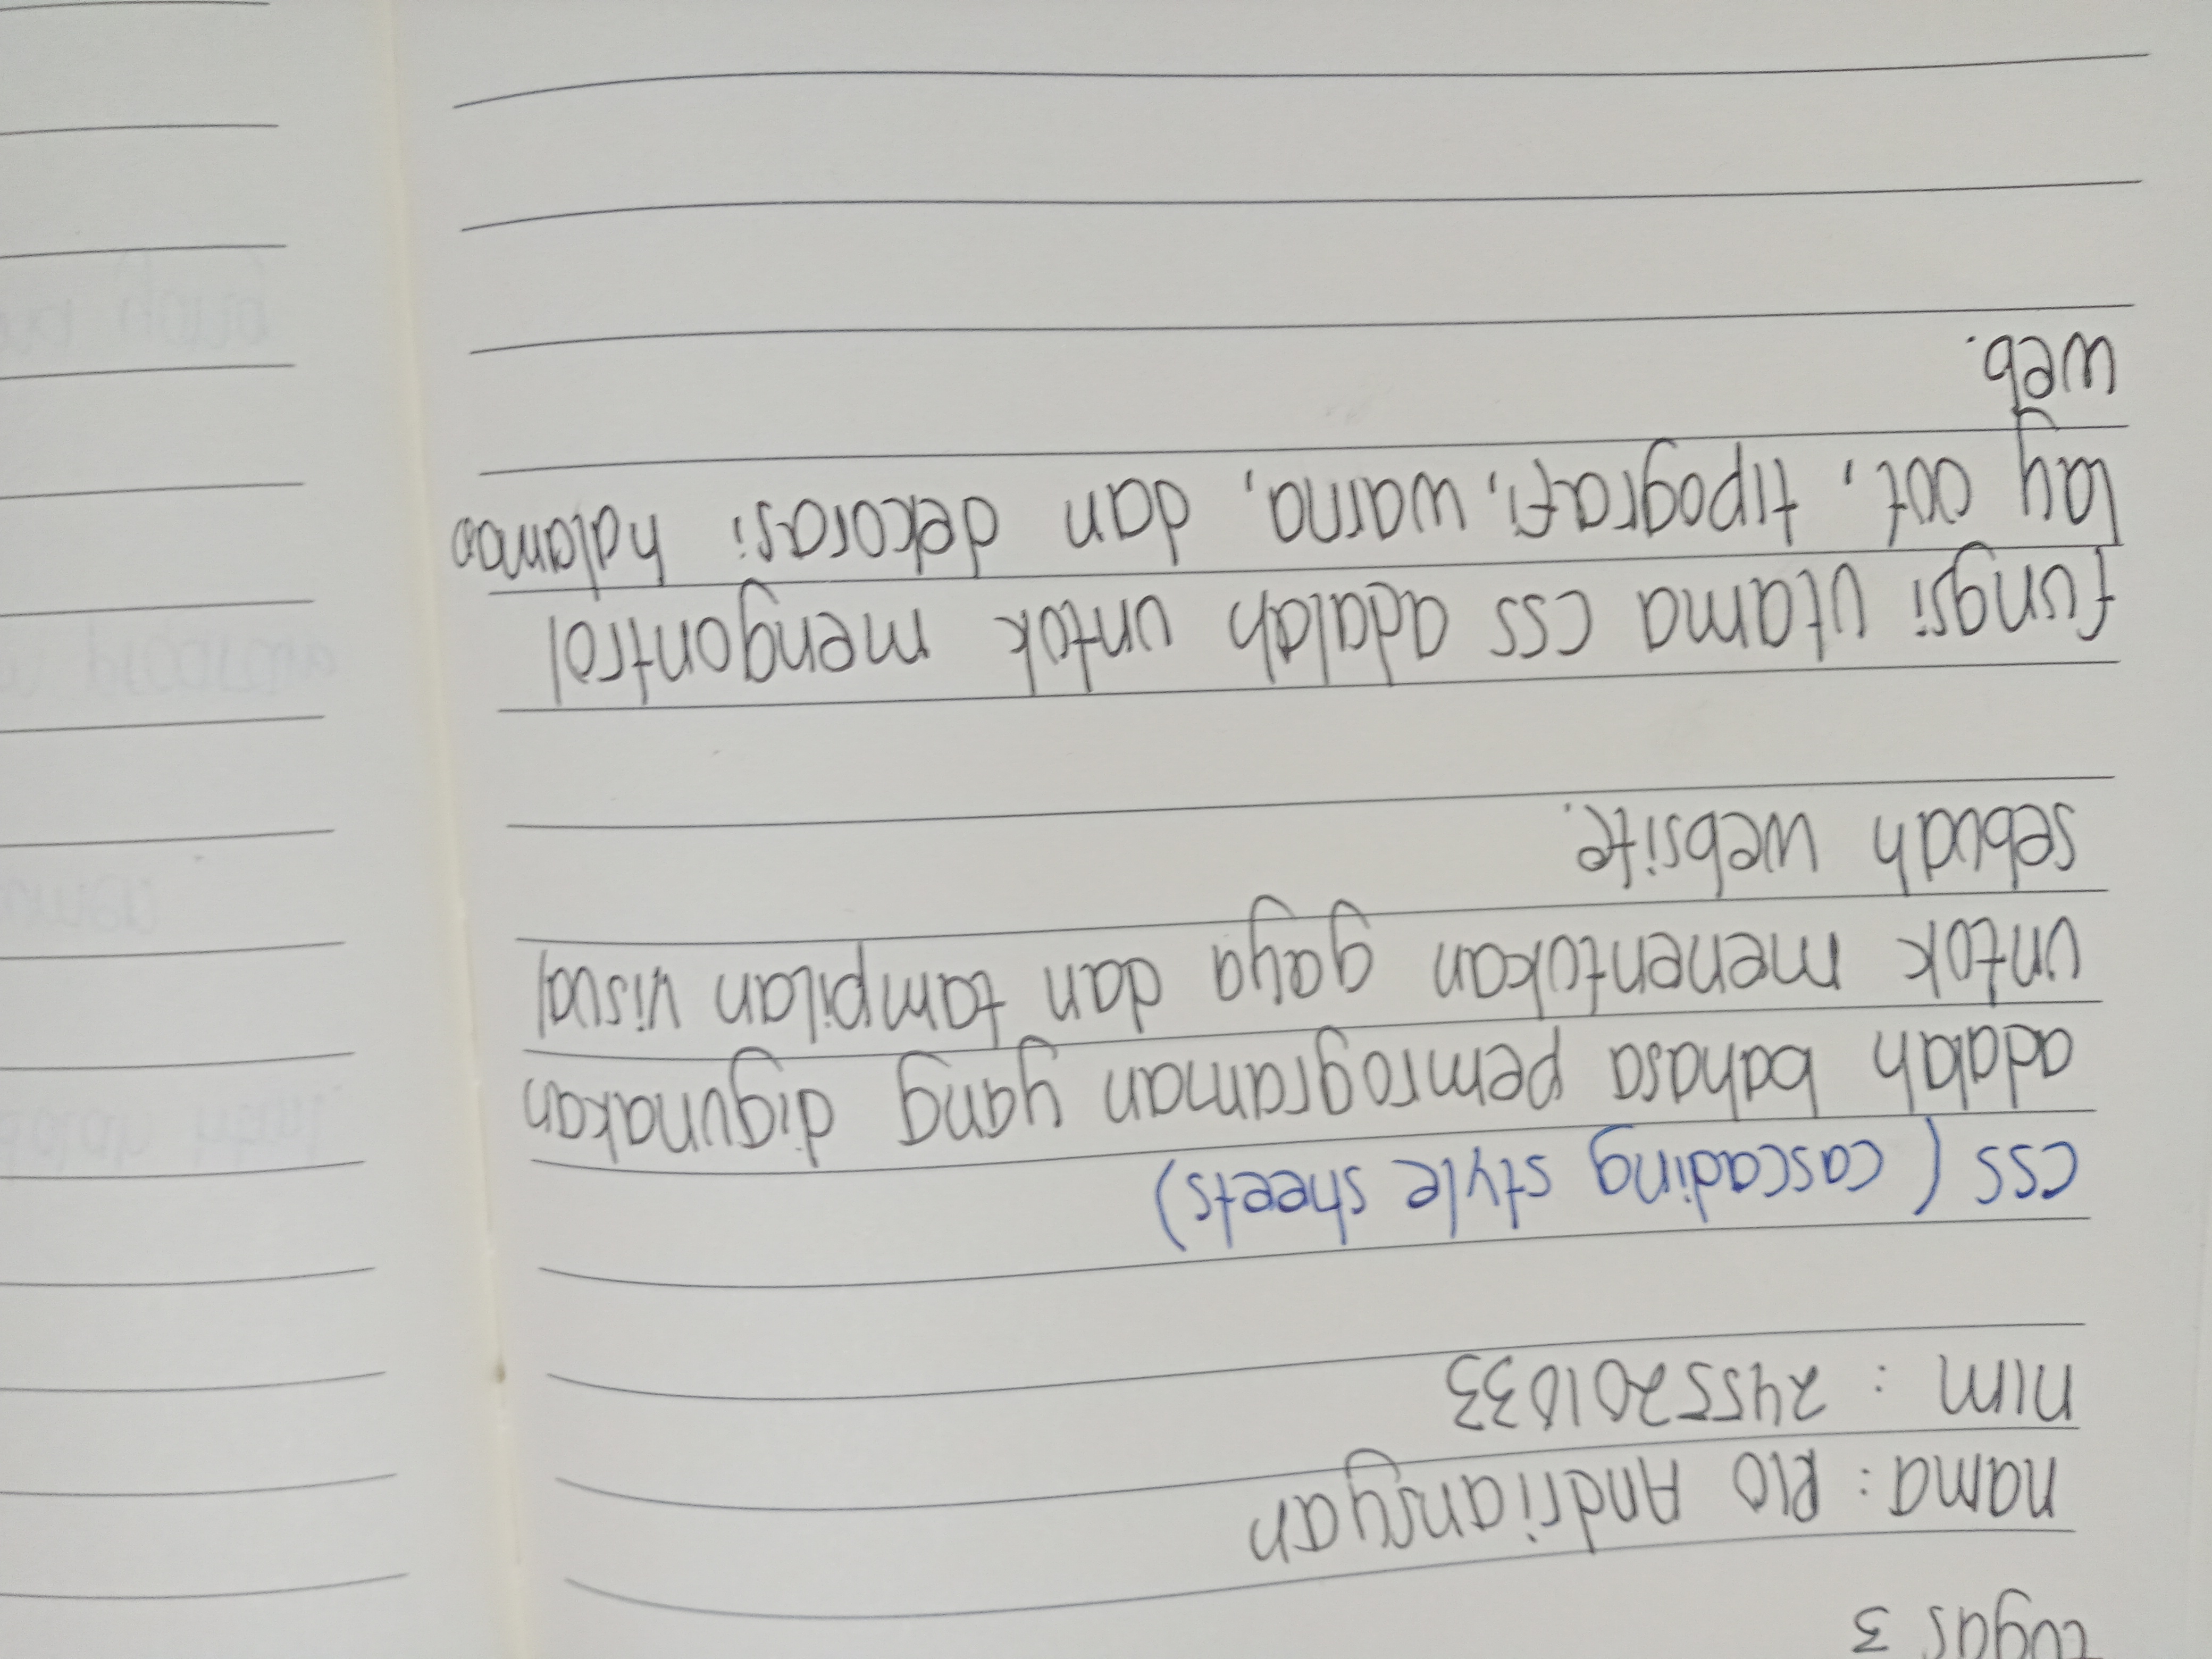 tugas 3
nama : RIO Andriansyah
nim : 2455201033
css ( cascading style sheets)
adalah bahasa pemrograman yang digunakan
untuk menentukan gaya dan tampilan visual
sebuah website.
fungsi utama css adalah untuk mengontrol
lay out, tipografi, warna, dan dekorasi halaman
web.